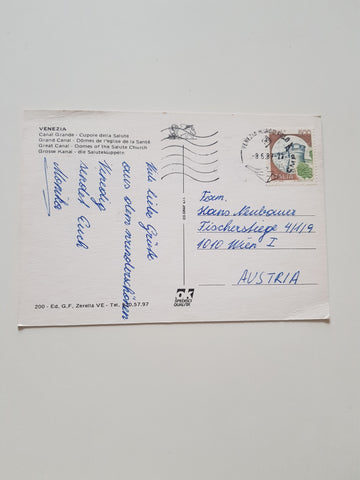 VENEZIA
Canal Grande - Cupole della Salute
Grand Canal - Dômes de l'église de la Santé
Great Canal - Domes of the Salute Church
Grosse Kanal - die Salutekuppeln
Viele liebe Grüße
aus dem wunderschönen
Venedig
sendet Euch
Monika
Fam.
Hans Neubauer
Fischerstiege 4/1/9
1010 Wien I
AUSTRIA
200 - Ed. G.F. Zerella VE - Tel.